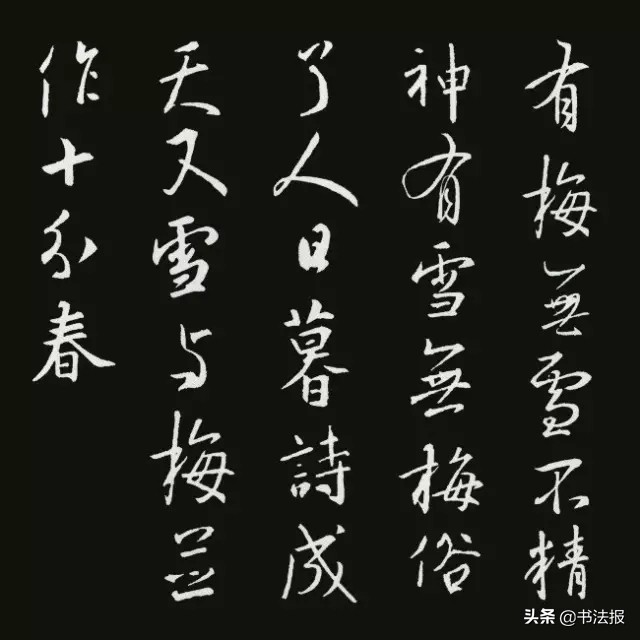 有梅無雪不精
神有雪無梅俗
了人日暮詩成
天又雪与梅並
作十分春
头条 @书法报